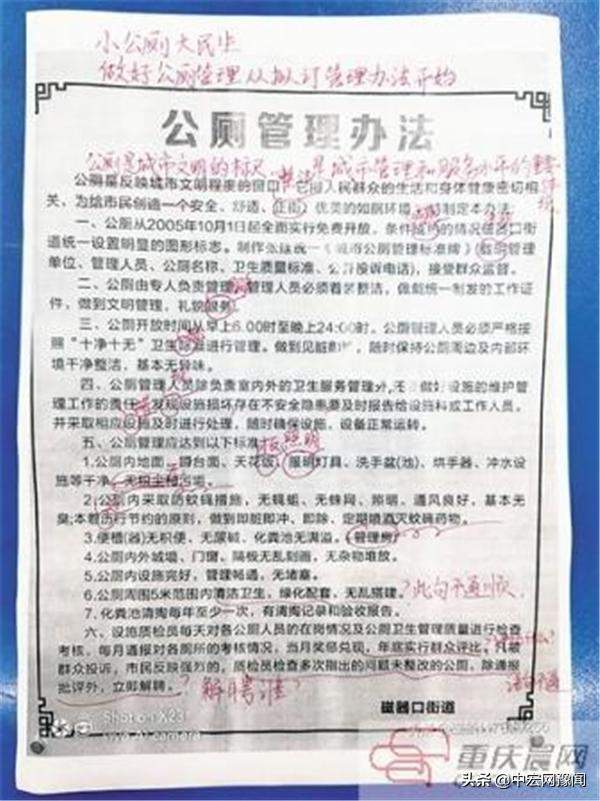 小公厕大民生
做好公厕管理从拟订管理办法开始
公厕管理办法
公厕是城市文明的标识
是城市管理和服务水平的重要
公厕是反映城市文明程度的窗口,它与人民群众的生活和身体健康密切相
关,为给市民创造一个安全、舒适、正街 优美的如厕环境 特制定本办法:
一、公厕从2005年10月1日起全面实行免费开放,条件 的情况 口街
道统一设置明显的图形标志。制作张 统一《城市公厕管理标准牌》 管理
单位、管理人员、公厕名称、卫生质量标准、公 投诉电话),接受群众监督。
二、公厕由专人负责管理 管理人员必须着装整洁,佩戴统一制发的工作证
件,做到文明管理,礼貌服务。
三、公厕开放时间从早上6.00时至晚上24:00时。公厕管理人员必须严格按
照“十净十无”卫生 进行管理。做到见脏 ,随时保持公厕周边及内部环
境干净整洁,基本无异味。
四、公厕管理人员除负责室内外的卫生服务管理外, 做好设施的维护管
理工作的责任 发现设施损坏存在不安全隐患要及时报告给设施科或工作人员。
并采取相应设施及时进行处理,随时确保设施、设备正常运转。
五、公厕管理应达到以下标准
板 照明
1.公厕内地面、蹲台面、天花饭、服明灯具、洗手盆(池)、烘手器、冲水设
施等干净 无积尘和污垢
2.公厕内采取防蚊蝇措施,无蝇蛆、无蛛网、照明、通风良好,基本无
臭;本着历行节约的原则,做到即脏即冲、即除、定期喷洒灭蚊药物。
3.便槽(器)无积便、无尿碱、化粪池无满溢。(管理房)
4.公厕内外城墙、门窗、隔板无乱刻画,无杂物堆放。
5.公厕内设施完好,管理畅通,无堵塞。
6.公厕周围5米范围内清洁卫生,绿化配套、无乱搭建。
?此句不通顺
7.化粪池清掏每年至少一次,有清掏记录和验收报告。
六、设施质检员每天对各公厕人员的在岗情况及公厕卫生管理质量进行检查
考核,每月通报对各厕所的考核情况,当月奖惩兑现,年底实行群众评比。凡被
群众投诉,市民反映强烈的,质检员检查多次指出的问题未整改的公厕,除通报
批评外,立即解聘。
?解聘谁?
磁器口街道
Shot on X23
vivo AI camera
重庆晨网
头条 @中宏网豫闻